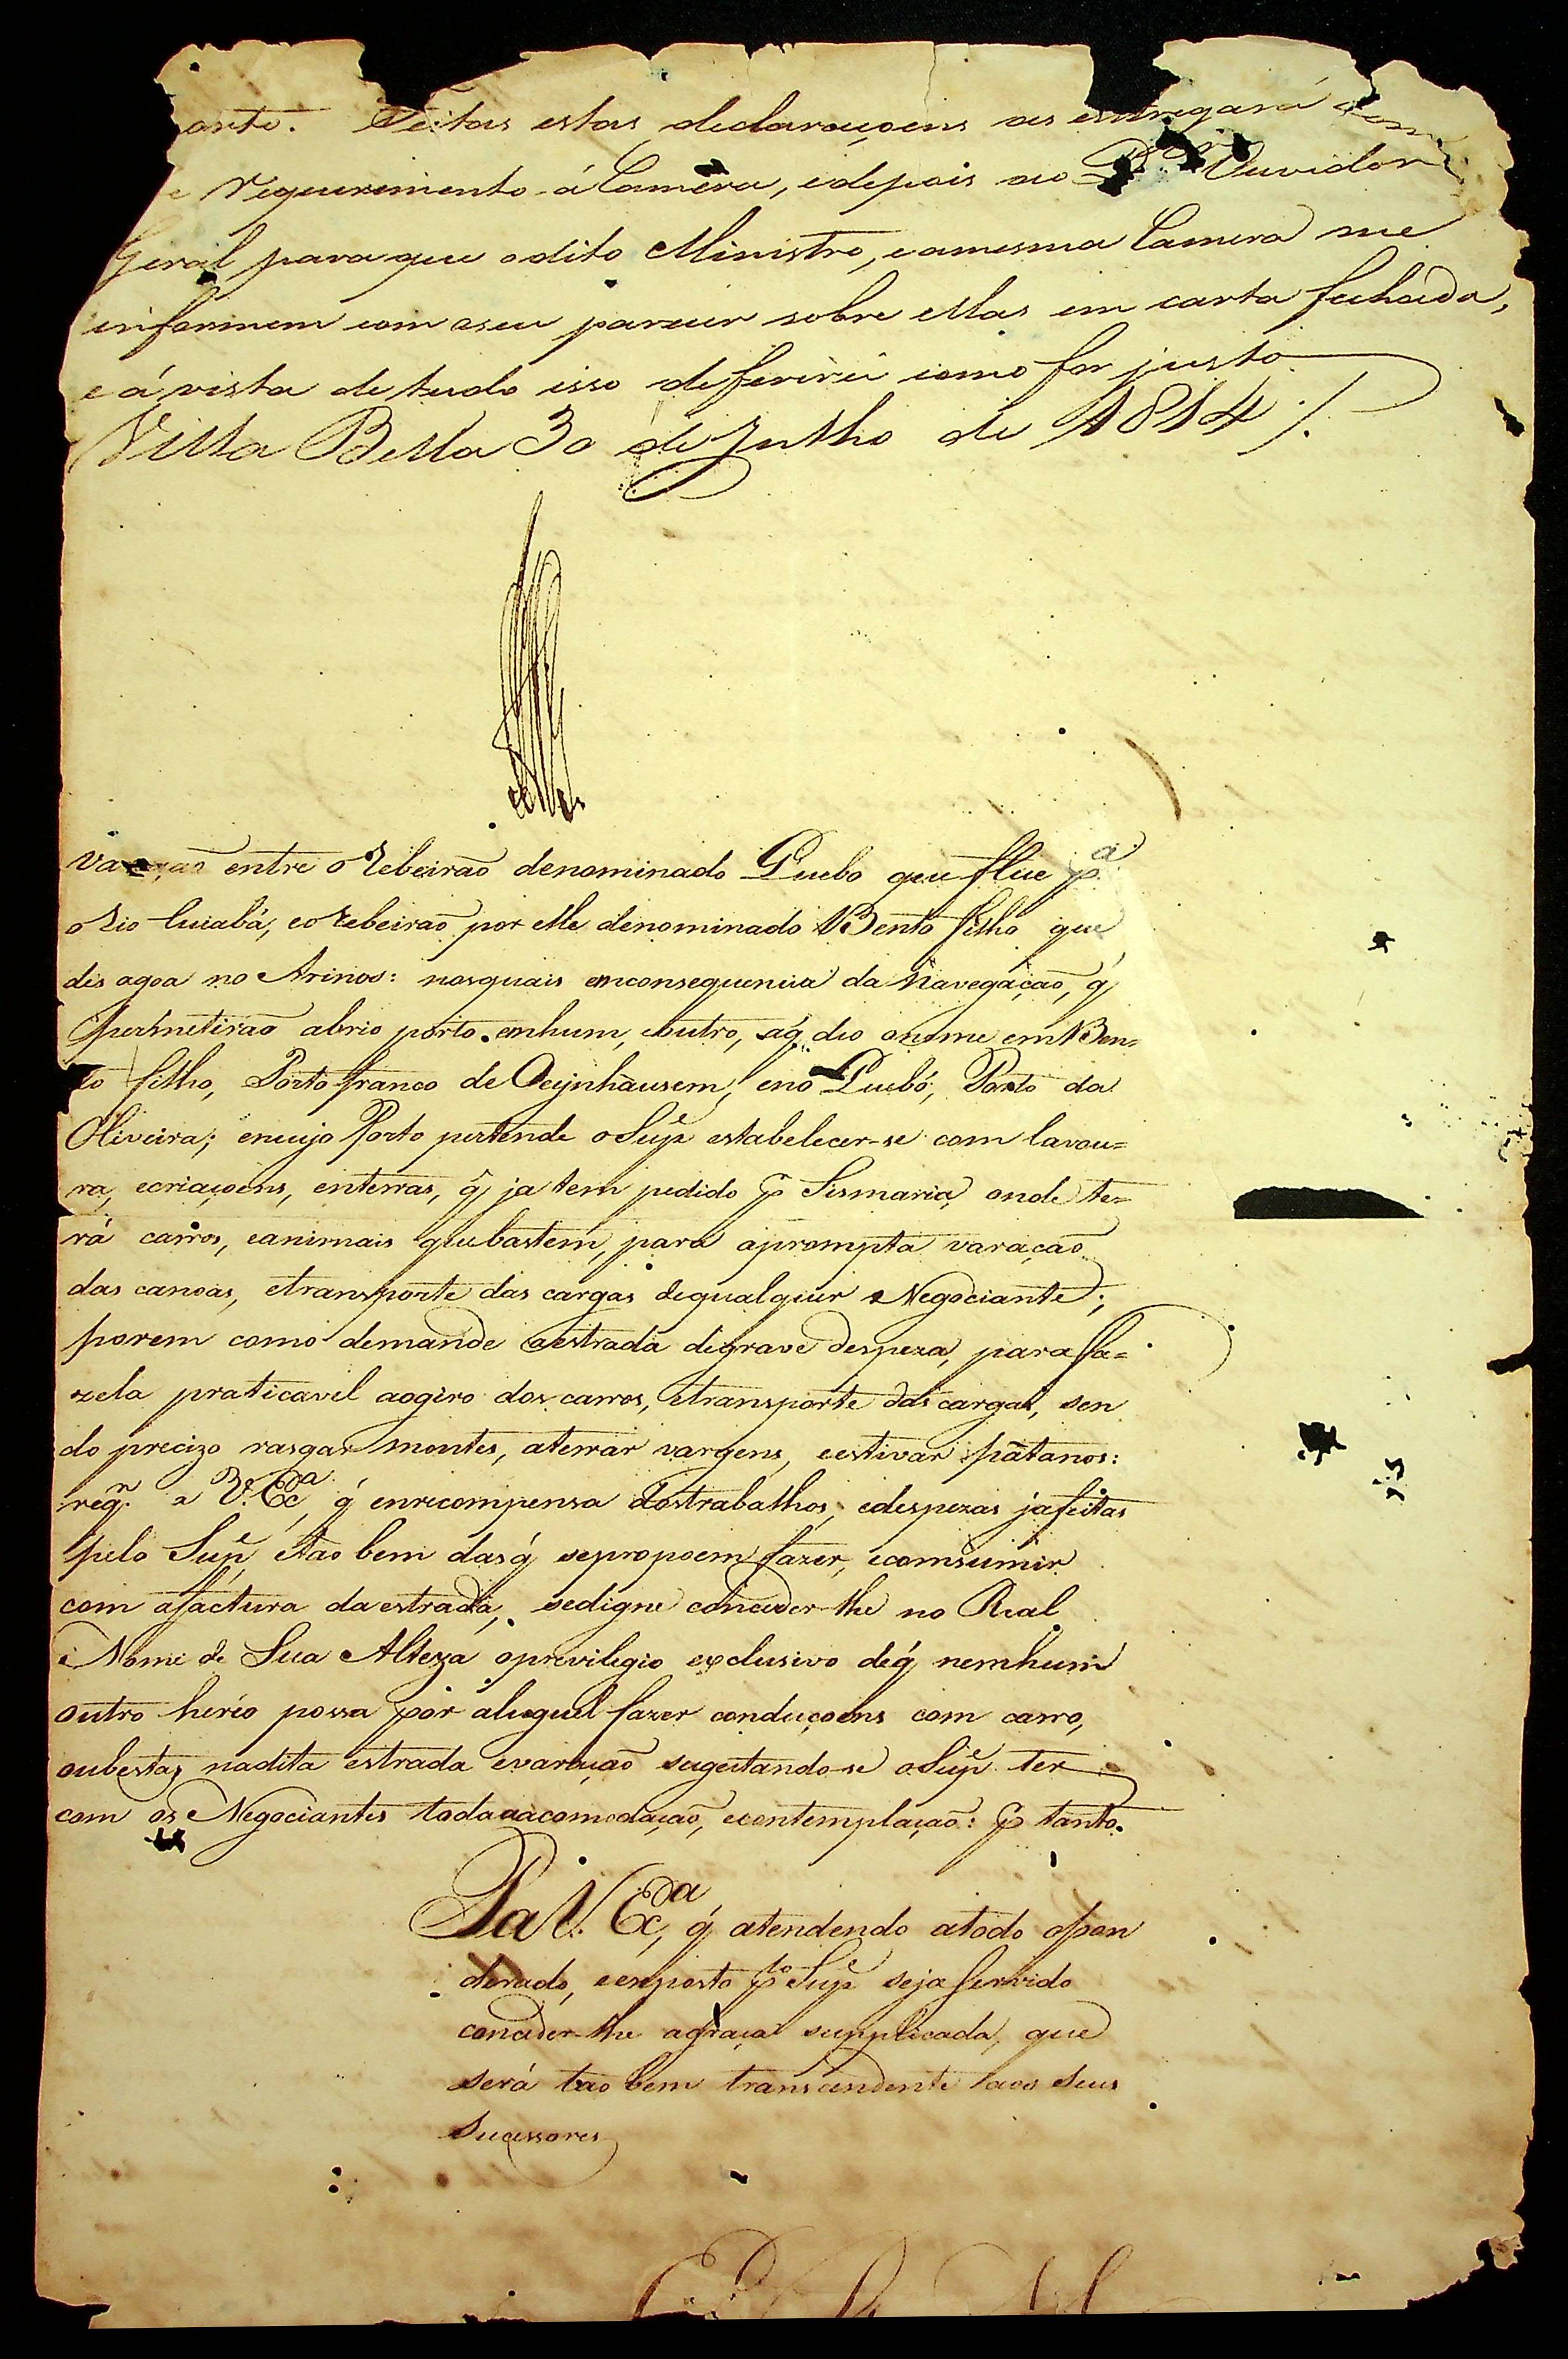 arte. Feitas estas declaraçoens as entregará com
e requerimento á Camera, e depois ao Ouvidor
Geral para que o dito Ministro, e a mesma Camera me
informem com o seu parecer sobre ellas em carta fechada,
e á vista de tudo isso deferirei como for justo
Villa Bella 30 de Julho de 1814 /.
varação entre o rebeirão denominado Quebo que flue pª
o rio Cuiabá, e o rebeirão por elle denominado Bento filho que
dis agoa no Arinos: nos quais em consequencia da Navegação, q̃
permetirão abrio porto em hum, e outro, a q̃ deo o nome em Ben=
to filho, Porto franco de Oeijnhausem, e no Quebó, Porto da
Oliveira; em cujo Porto pertende o Supe estabelecer-se com lavou=
ra, e criaçoens, em terras, q̃ ja tem pedido p Sismaria, onde te=
rá carros, e animais que bastem, para a prompta varação
das canoas, e transporte das cargas de qualquer Negociante;
porem como demande a estrada de grave despeza, para fa=
zela praticavel ao giro dos carros, e transporte das cargas, sen
do precizo rasgar montes, aterrar vargens, e estivar pãtanos:
reqr. a V. Exa, q̃ em recompensa dos trabalhos, e despezas ja feitas
pelo Supe, e tão bem das q̃ se propoem fazer, e comsumir
com a factura da estrada, se digne conceder-lhe no Real
Nome de Sua Alteza o previlegio exclusivo de q̃ nemhum
outro heréo possa por aluguel fazer conduçoens com carro,
ou bestas na dita estrada e varação sugeitando-se o Supe ter
com os Negociantes toda a acomodação, e contemplação: p tanto.
P a V. Exa, q̃ atendendo a todo o pon
derado, e exposto pto Supe seja servido
conceder-lhe a graça supplicada, que
será tão bem transcendente aos seus
sucessores